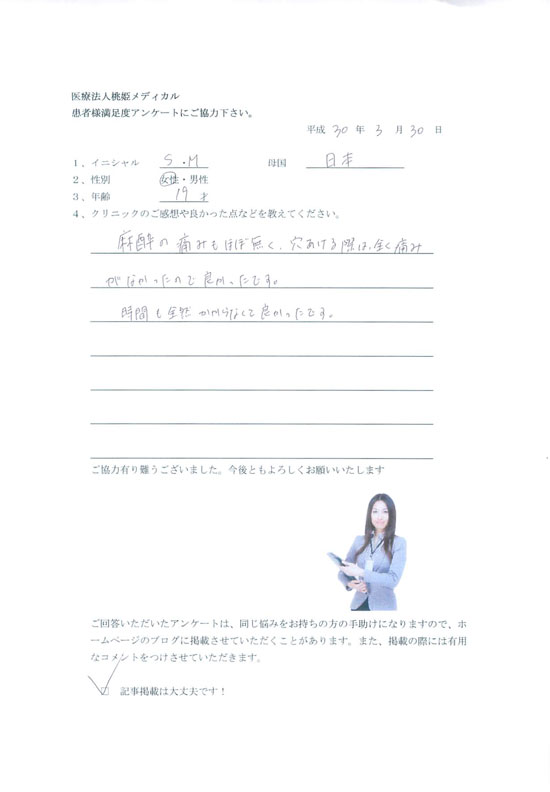 医療法人桃姫メディカル
患者様満足度アンケートにご協力下さい。
平成 30 年 3 月 30 日
1、イニシャル S.M 母国 日本
2、性別 女性・男性
3、年齢 19才
4、クリニックのご感想や良かった点などを教えてください。
麻酔の痛みもほぼ無く、穴あける際は全く痛み
がなかったので良かったです。
時間も全然かからなくて良かったです。
ご協力有り難うございました。今後ともよろしくお願いいたします
ご回答いただいたアンケートは、同じ悩みをお持ちの方の手助けになりますので、ホ
ームページのブログに掲載させていただくことがあります。また、掲載の際には有用
なコメントをつけさせていただきます。
□ 記事掲載は大丈夫です！